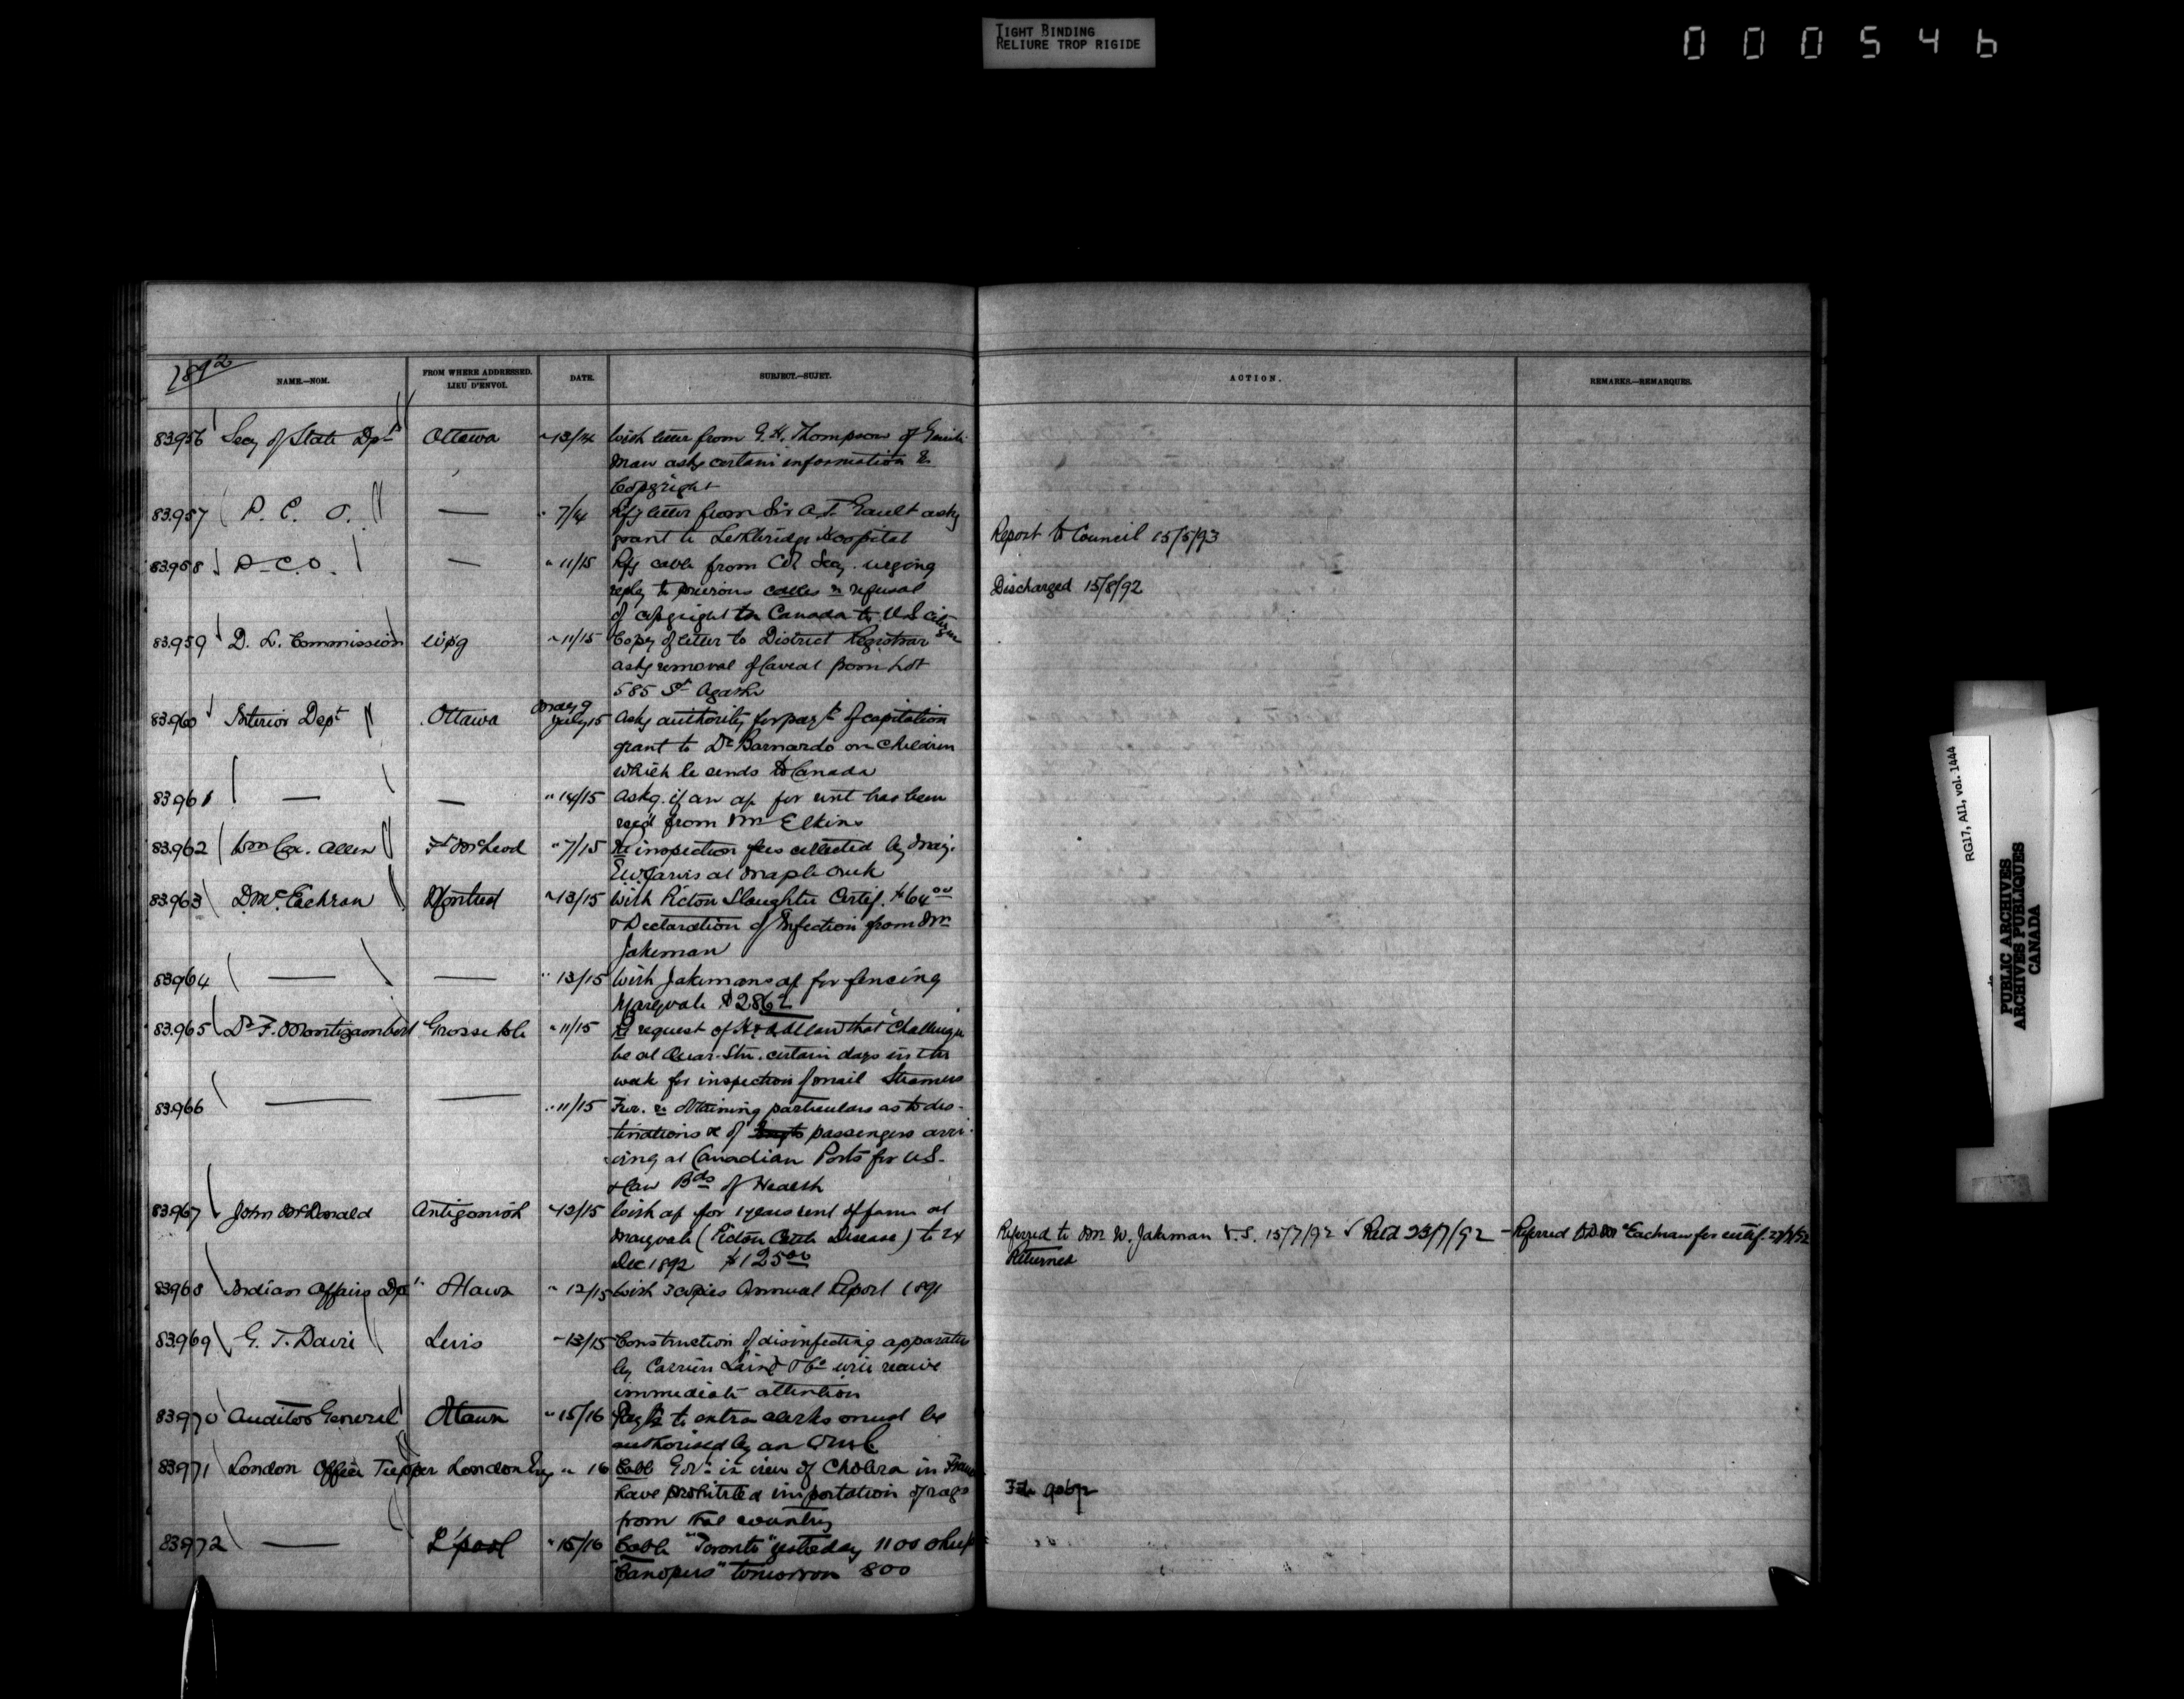 TIGHT BINDING
RELIURE TROP RIGIDE
000546
1892
NAME.—NOM.
FROM WHERE ADDRESSED.
LIEU D'ENVOI.
DATE.
SUBJECT.—SUJET.
ACTION.
REMARKS.—REMARQUES.
83956 Secy of State Dpt Ottawa " 13/14 With letter from G. H. Thompson of
asks certain information re
Copyright
83957 P. C. O. — " 7/14 Rfg letter from Sir A. T. Gault askg
grant to Lethbridge Hospital
Report to Council 15/5/93
83958 P. C. O. — " 11/15 Rfg cable from Col Secy. urging
reply to previous cables re refusal
of copyright to Canada to U S citizen
Discharged 15/8/92
83959 D. L. Commission Wpg " 11/15 Copy of letter to District Registrar
askg removal of Caveat from Lot
585 St Agathe
83960 Interior Dept Ottawa May 9
July 15 Askg authority for payt of capitation
grant to Dr Barnardo on children
which he sends to Canada
83961 — — " 14/15 Askg. if an ap for rent has been
recd from Mr Elkins
83962 Wm Cox. Allen Ft McLeod " 7/15 Re inspection fees collected by Maj.
E. W. Jarvis at Maple Creek
83963 D. McEachran Montreal " 13/15 With Picton Slaughter Certif. $64.00
& Declaration of Infection from Mr
Jakeman
83964 — — " 13/15 With Jakemans ap for fencing
Maryvale $2862
83965 Dr F. Montizambert Grosse Isle " 11/15 Re request of H & A Allan that "Challenger
be at Quar. Stn. certain days in the
week for inspection of mail Steamers
83966 — — " 11/15 Fur. re obtaining particulars as to des-
tinations &c of passengers arri-
ving at Canadian Ports for U S.
& Can Bds of Health
83967 John McDonald Antigonish " 13/15 With ap for 1 years rent of farm at
Maryvale (Picton Cattle Disease) to 24
Dec 1892 $125.00
Referred to Mr W. Jakeman V. S. 15/7/92 ✓ Retd 23/7/92 – Referred to D McEachran for certif.
Returned
83968 Indian Affairs Dpt Ottawa " 12/15 With 3 copies Annual Report 1891
83969 G. T. Davie Levis " 13/15 Construction of disinfecting apparatus
by Carrier Laine & Co will receive
immediate attention
83970 Auditor General Ottawa " 15/16 Payts to extra clerks must be
authorised by an
83971 London Office Tupper London Eng " 16 Cable Govt in view of Cholera in France
have prohibited importation of rags
from that country
83972 — L'pool " 15/16 Cable "Toronto" yesterday 1100 sheep
tomorrow 800
RG17, AII, vol. 1444
PUBLIC ARCHIVES
ARCHIVES PUBLIQUES
CANADA